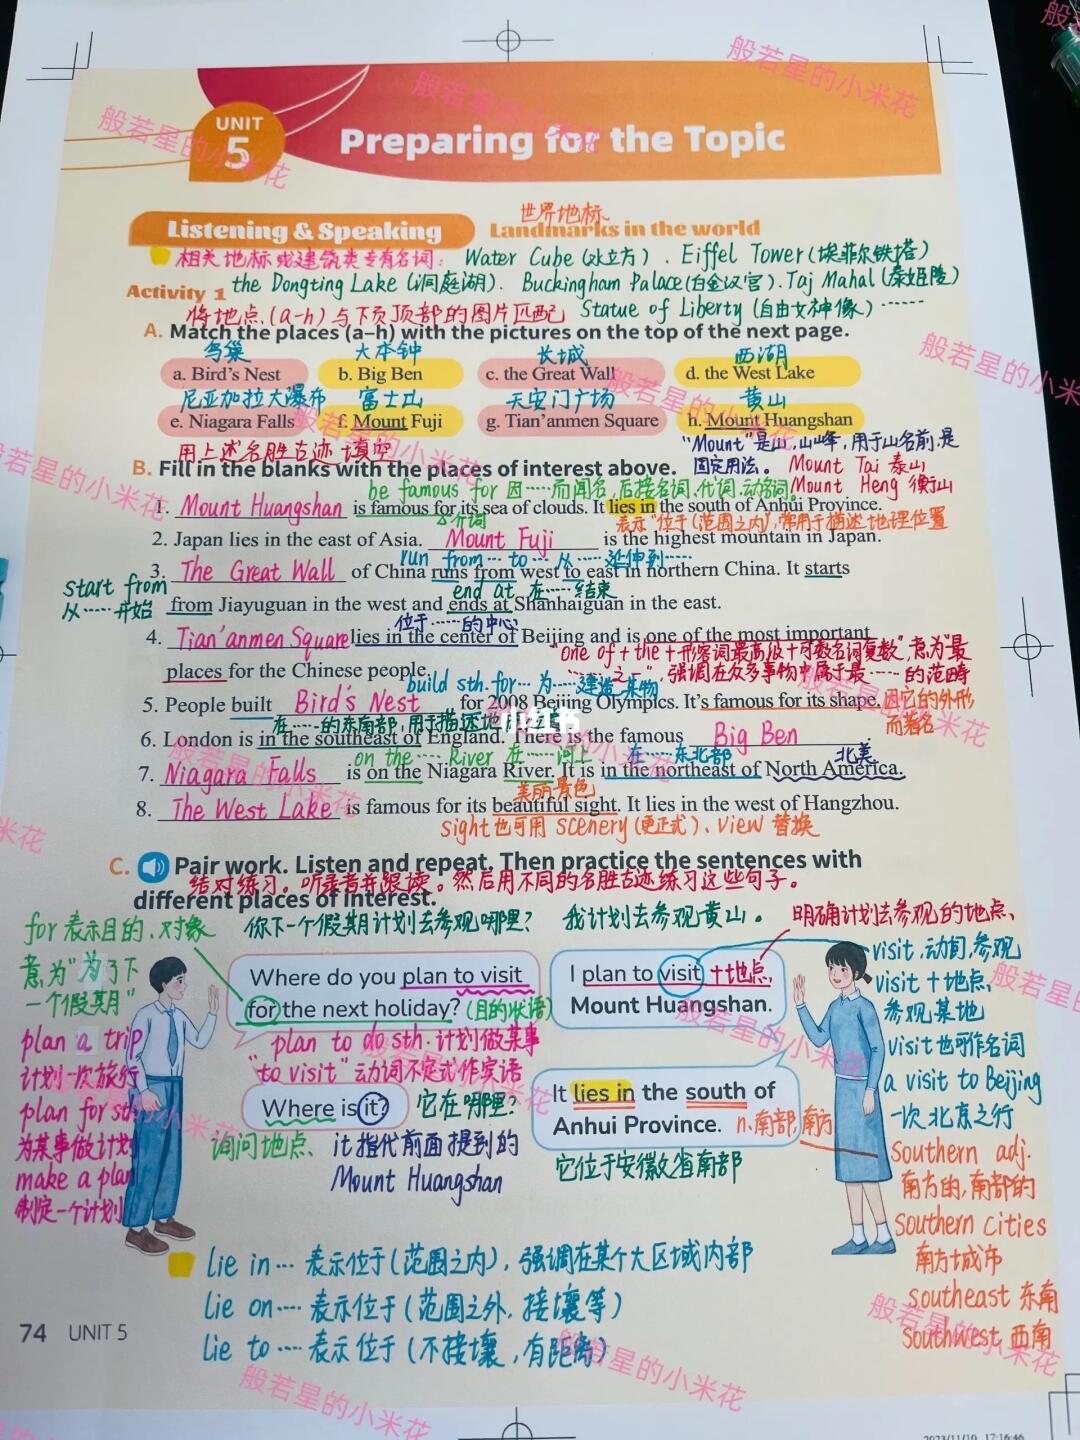 UNIT 5
Preparing for the Topic
世界地标
Listening & Speaking Landmarks in the world
相关地标或建筑类专有名词: Water Cube (水立方)、Eiffel Tower (埃菲尔铁塔)
the Dongting Lake (洞庭湖)、Buckingham Palace (白金汉宫)、Taj Mahal (泰姬陵)
Activity 1
将地点(a-h)与下页顶部的图片匹配 Statue of Liberty (自由女神像)……
A. Match the places (a–h) with the pictures on the top of the next page.
鸟巢 大本钟 长城 西湖
a. Bird's Nest b. Big Ben c. the Great Wall d. the West Lake
尼亚加拉大瀑布 富士山 天安门广场 黄山
e. Niagara Falls f. Mount Fuji g. Tian'anmen Square h. Mount Huangshan
用上述名胜古迹填空 "Mount"是山,山峰,用于山名前,是
B. Fill in the blanks with the places of interest above. 固定用法。 Mount Tai 泰山
be famous for 因……而闻名,后接名词、代词、动名词。 Mount Heng 衡山
1. Mount Huangshan is famous for its sea of clouds. It lies in the south of Anhui Province.
介词 表示"位于(范围之内)",常用于描述地理位置
2. Japan lies in the east of Asia. Mount Fuji is the highest mountain in Japan.
run from … to … 从……延伸到……
3. The Great Wall of China runs from west to east in northern China. It starts
start from end at 在……结束
从……开始 from Jiayuguan in the west and ends at Shanhaiguan in the east.
位于……的中心
4. Tian'anmen Square lies in the center of Beijing and is one of the most important
"one of + the + 形容词最高级 + 可数名词复数",意为"最
places for the Chinese people. ……之一",强调在众多事物中属于最……的范畴
build sth. for … 为……建造某物
5. People built Bird's Nest for 2008 Beijing Olympics. It's famous for its shape. 因它的外形
而著名
在……的东南部,用于描述地
小红书
6. London is in the southeast of England. There is the famous Big Ben.
on the …… River 在……河上 在……东北部 北美
7. Niagara Falls is on the Niagara River. It is in the northeast of North America.
美丽景色
8. The West Lake is famous for its beautiful sight. It lies in the west of Hangzhou.
sight也可用 scenery (更正式)、view 替换
C. Pair work. Listen and repeat. Then practice the sentences with
结对练习。听录音并跟读。然后用不同的名胜古迹练习这些句子。
different places of interest.
for 表示目的、对象
意为"为了下
一个假期"
plan a trip
计划一次旅行
plan for sth
为某事做计划
make a plan
制定一个计划
你下一个假期计划去参观哪里? 我计划去参观黄山。 明确计划去参观的地点、
Where do you plan to visit
for the next holiday? (目的状语)
plan to do sth. 计划做某事
"to visit" 动词不定式作宾语
I plan to visit +地点、
Mount Huangshan.
Where is it? 它在哪里?
询问地点、 it 指代前面提到的
Mount Huangshan
It lies in the south of
Anhui Province. n.南部,南方
它位于安徽省南部
visit ,动词,参观
visit + 地点、
参观某地
visit也可作名词
a visit to Beijing
一次北京之行
Southern adj.
南方的,南部的
Southern cities
南方城市
southeast 东南
Southwest 西南
lie in … 表示位于(范围之内),强调在某个大区域内部
lie on …. 表示位于(范围之外,接壤等)
lie to …. 表示位于(不接壤,有距离)
74 UNIT 5
2023/11/10 17:16:46
般若星的小米花